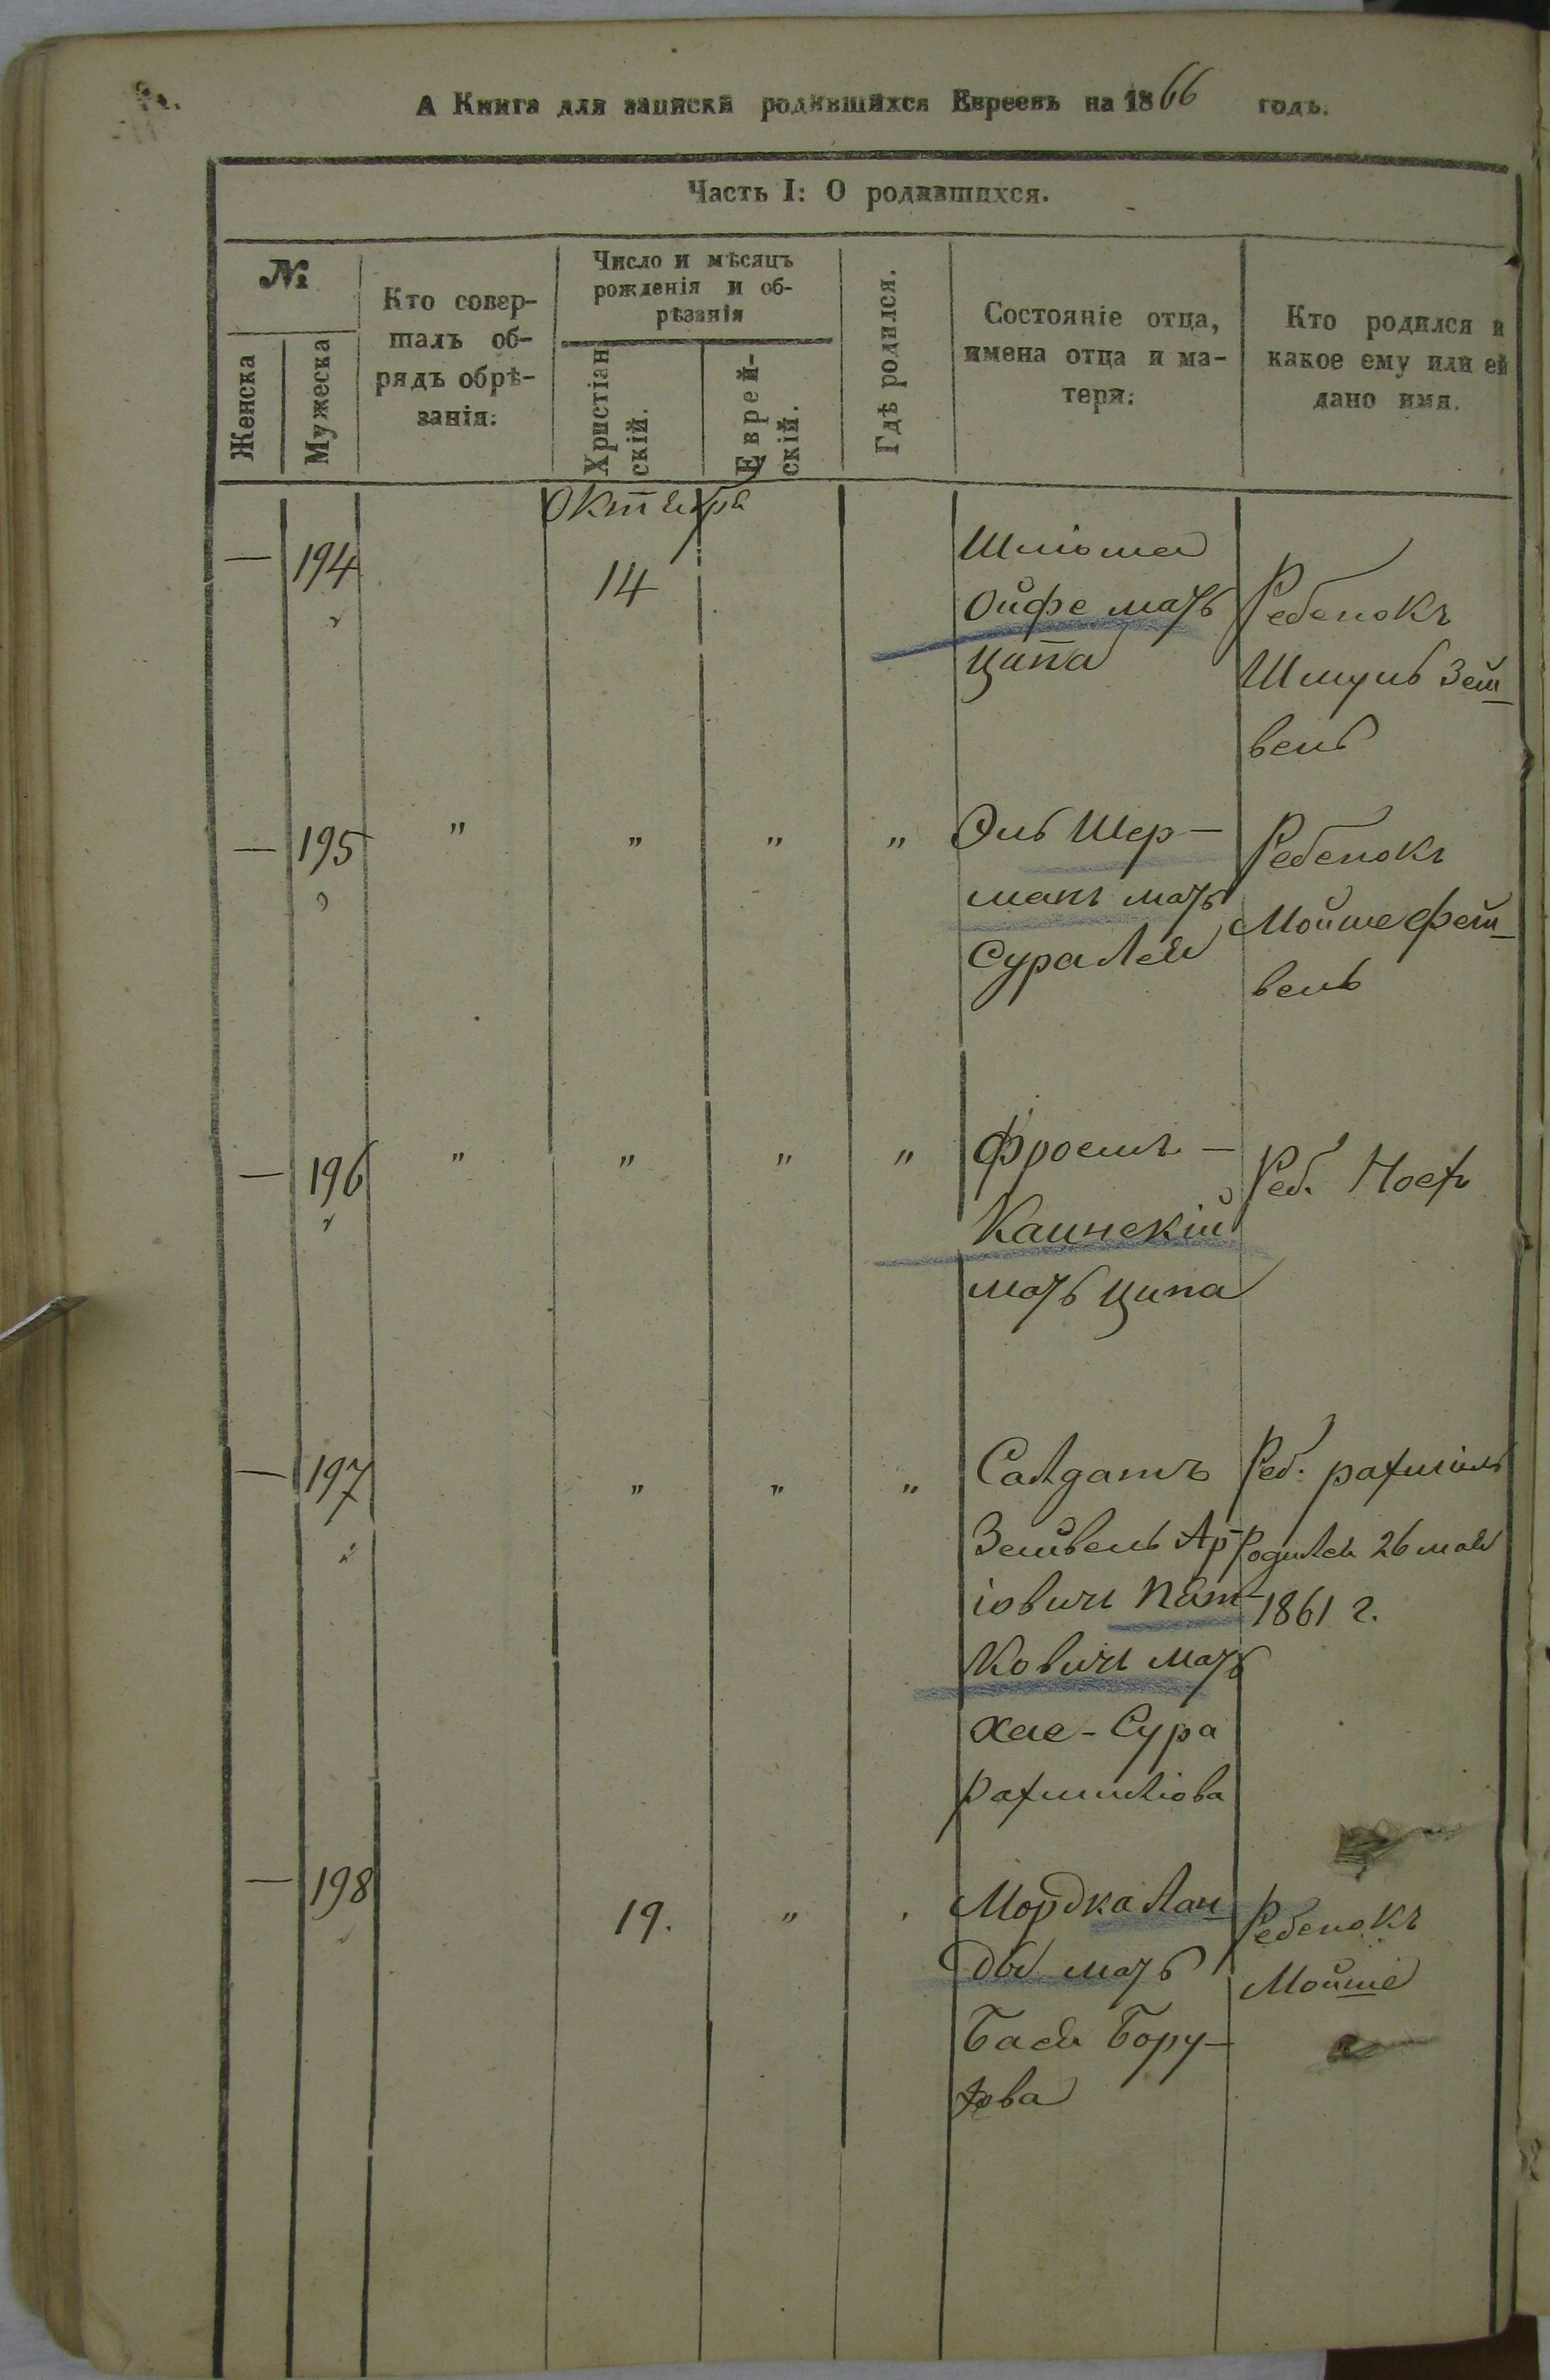 А Книга для записки родившихся Евреевъ на 1866 годъ.
Часть I: О родившихся.
№
Женска
Мужеска
Кто совер-
шалъ об-
рядъ обрѣ-
занія:
Число и мѣсяцъ
рожденія и об-
рѣзанія
Христіан
скій.
Еврей-
скій.
Гдѣ родился.
Состояніе отца,
имена отца и ма-
тери:
Кто родился и
какое ему или ей
дано имя.
Октября
— 194 14
Шліома
Ойфе мать
Ципа
Ребенокъ
Шмуль Зей
вель
— 195 " " " "
Эль Шер-
манъ мать
Сура Лея
Ребенокъ
Мойше фей
вель
— 196 " " " "
Фроемъ -
Каинскій
мать Ципа
Реб. Ноехъ
— 197 " " "
Салдатъ
Зейвель Ар-
іовичъ Пят-
ковичъ мать
Хае-Сура
Рахмиліова
Реб. рахміиль
Родился 26 мая
1861 г.
— 198 19. "
Мордка Лан
ды мать
Бася Бору-
хова
Ребенокъ
Мойше